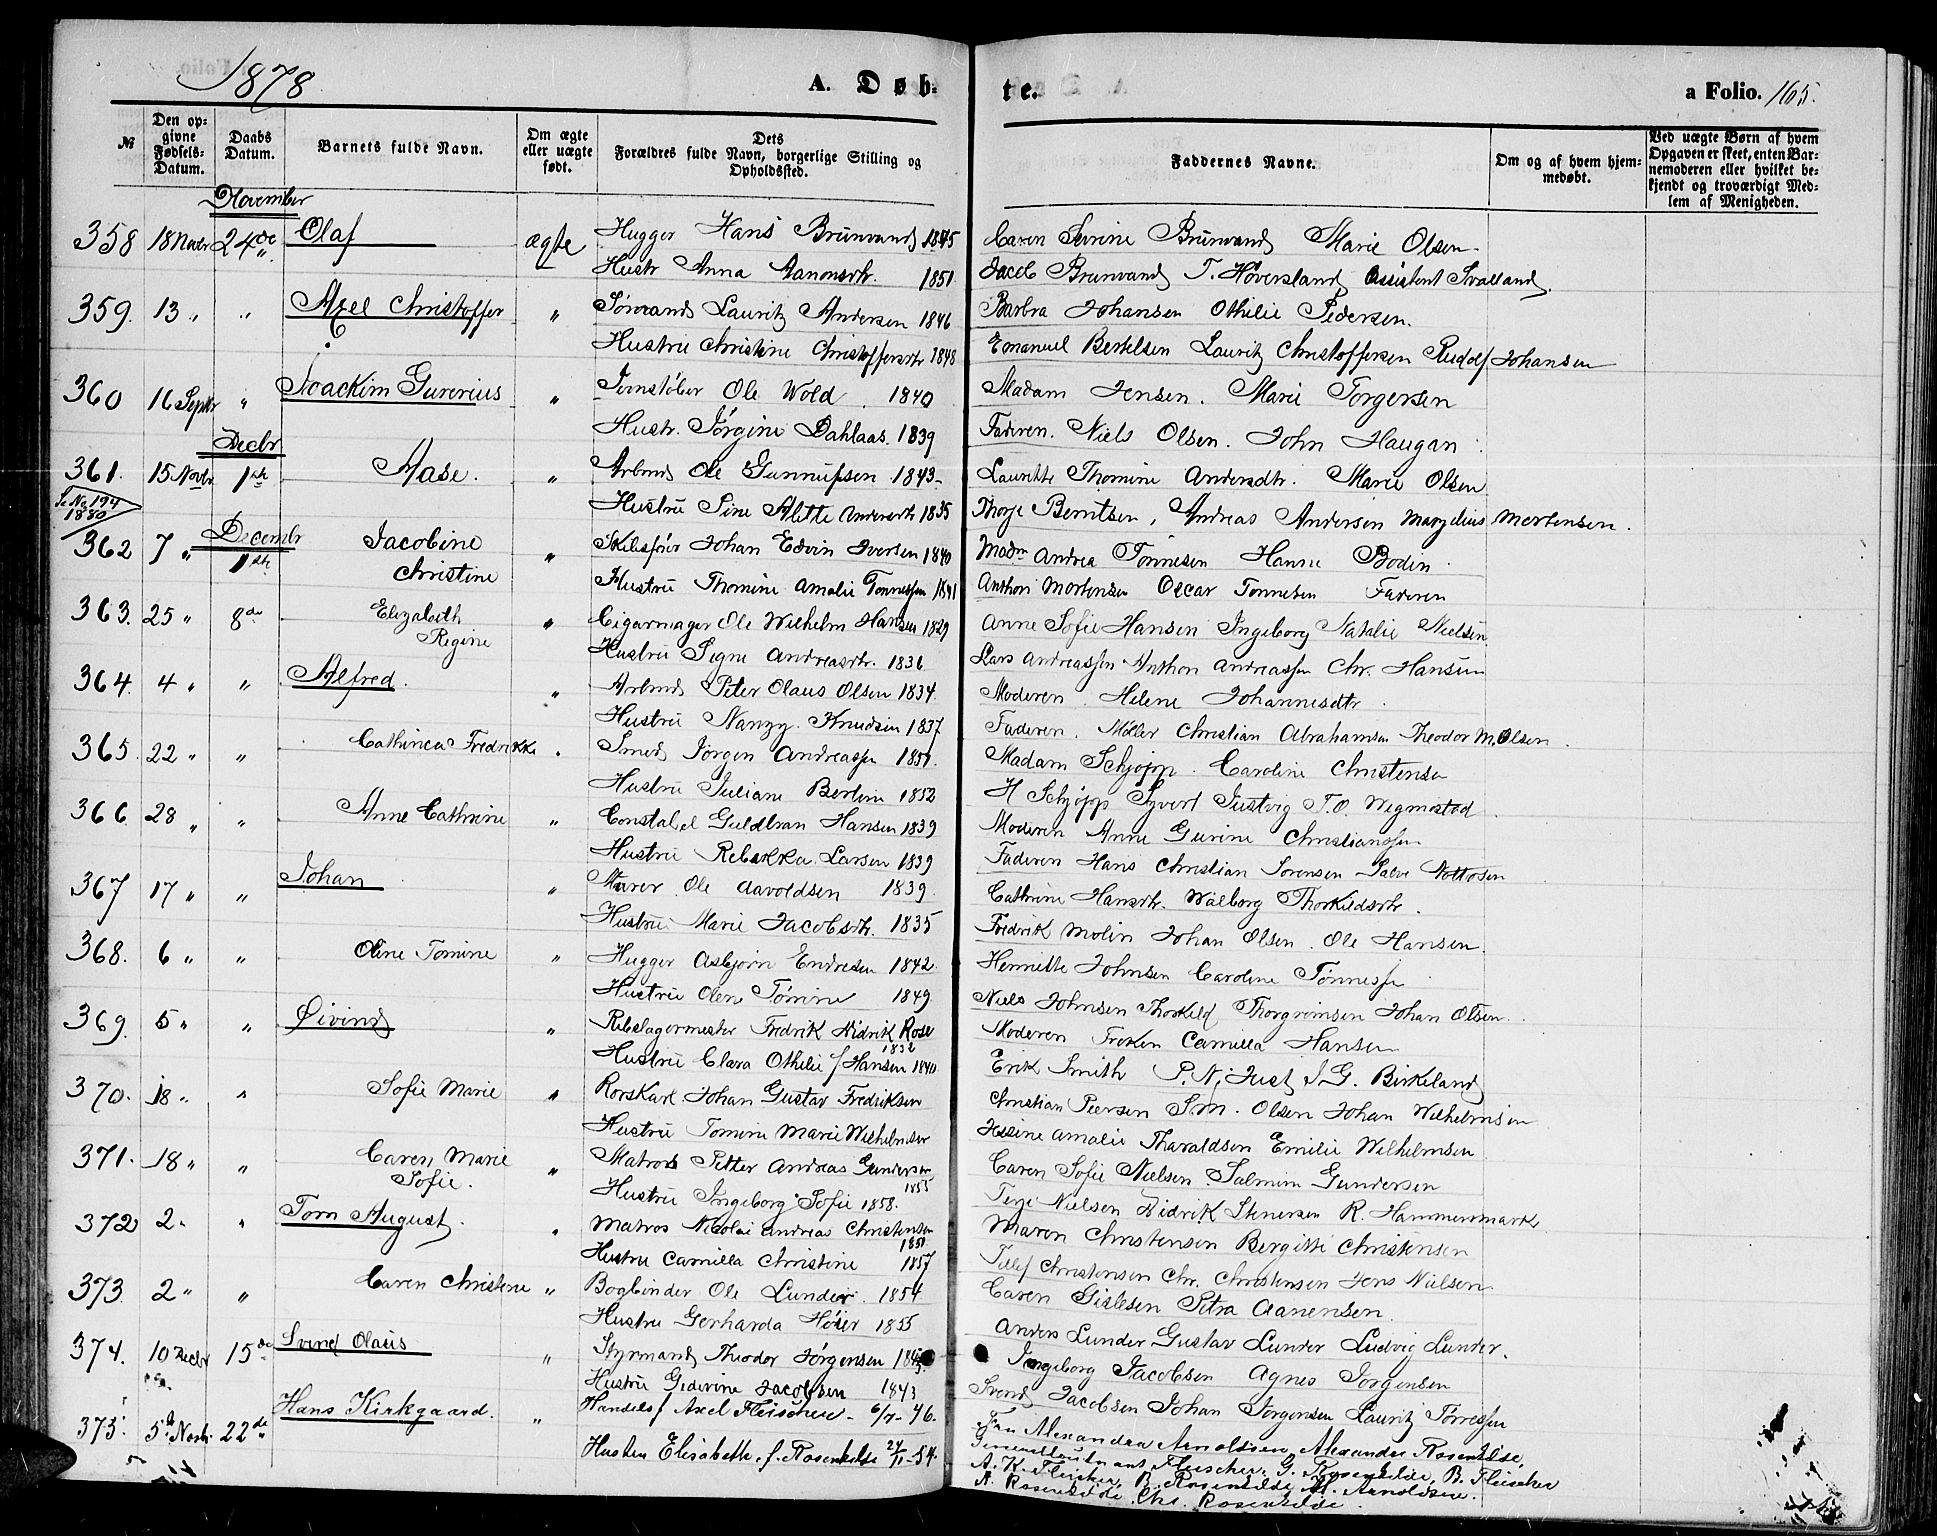 1878
A. Døb-
te.
a Folio. 165.
№
Den opgivne Fødsels-Datum.
Daabs Datum.
Barnets fulde Navn.
Om ægte eller uægte født.
Dets Forældres fulde Navn, borgerlige Stilling og Opholdssted.
Faddernes Navne.
Om og af hvem hjemmedøbt.
Ved uægte Børn af hvem Opgaven er skeet, enten Barnemoderen eller hvilket bekjendt og troværdigt Medlem af Menigheden.
November
358 18 Novbr 24de Olaf ægte Hugger Hans Brunvand 1845 Caren Serine Brunvand Marie Olsen
Hustr Anna Aanonsdtr. 1851 Jacob Brunvand T. Høversland Assistent Svaland
359. 13 „ „ Axel Christoffer „ Lauritz Andersen 1846 Barbra Johansen Othilie Pedersen.
Hustru Christine Christoffersdtr 1848 Emanuel Bertelsen Lauritz Christoffersen Rudolf Johansen
360 16 Septbr „ Joachim Gurerius „ Jernstøber Ole Wold 1840 Madam Jensen. Marie Torgersen
Hustr. Jørgine Dahlaas. 1839 Faderen. Niels Olsen. John Haugan
Decbr
361. 15 Novbr 1ste Aase. „ Arbmd Ole Gunnufsen 1843 Laurette Thomine Andersdtr. Marie Olsen
Se No 194
1880
Hustru Sine Alette Andersdtr 1835 Thorje Berntsen, Andreas Andersen Marzelius Mortensen.
Decembr
362 7 „ 1ste Jacobine „ Skibsfører Johan Edvin Iversen 1840 Madm Andrea Tønnesen Hanne Bodin
Christine Hustru Thomine Amalie Tønnessen 1841 Anthon Mortensen Oscar Tønnesen Faderen
363. 25 „ 8de Elizabeth „ Cigarmager Ole Wilhelm Hansen 1829 Anne Sofie Hansen Ingeborg Natalie Nielsen
Regine Hustru Signe Andreasdtr. 1836 Lars Andreassen Anthon Andreassen Chr. Hansen
364. 4 „ „ Alfred. „ Arbmd Peter Olaus Olsen 1834. Moderen. Helene Johannesdtr
Hustru Nanzy Knudsen 1837 Faderen. Møller Christian Abrahamsen Theodor M. Olsen.
365. 22 „ „ Cathinca Fredrikke „ Smed Jørgen Andreassen 1851. Madam Schjøpp. Caroline Christensen
Hustru Juliane Bertine 1852 H Schjøpp Syvert Justvig T. O. Wigmostad
366. 28 „ „ Anne Cathrine „ Constabel Guldbran Hansen 1839 Moderen Anne Gurine Christianssen
Hustru Rebekka Larsen 1839 Faderen Hans Christian Sørensen Salve Nottosen
367 17 „ „ Johan „ Murer Ole Aavoldsen 1839. Cathrine Hansdtr. Walborg Thorkildsdtr.
Hustru Marie Jacobsdtr. 1835 Fredrik Molin Johan Olsen. Ole Hansen
368. 6 „ „ Oline Tomine „ Hugger Asbjørn Endresen 1842 Henriette Johnsen Caroline Tønnessen
Hustru Olene Tomine 1849. Niels Johnsen Thorkild Thorgrimsen Johan Olsen.
369. 5 „ „ Øivind „ Rebslagermester Fredrik Didrik Rose 1832 Moderen Frøken Camilla Hansen
Hustru Clara Othilie f Hansen 1840 Erik Smith P. N. Just J. G. Birkeland
370. 18 „ „ Sofie Marie „ Rorskarl Johan Gustav Fredriksen Christian Peersen S. M. Olsen Johan Wilhelmsen
Hustru Tomine Marie Wilhelmsen Josine Amalie Tharaldsen Emilie Wilhelmsen
371. 18 „ „ Caren Marie „ Matros Petter Andreas Gundersen 1855 Caren Sofie Nielsen Salmine Gundersen
Sofie. Hustru Ingeborg Sofie 1858. Terje Nielsen Didrik Stenersen R. Hammermark
372 2 „ „ Tom August. „ Matros Nicolai Andreas Christensen 1851 Maren Christensen Bergitte Christensen
Hustru Camilla Christine 1857 Tellef Christensen Chr. Christensen Jens Nielsen
373. 2 „ „ Caren Christine „ Bogbinder Ole Lunder. 1854 Caren Gislesen Petra Aanensen.
Hustru Gerharda Høier 1855 Anders Lunder Gustav Lunder Ludvig Lunder.
374. 10 Decbr 15de Svend Olaus „ Styrmand Theodor Jørgensen Ingeborg Jacobsen Agnes Jørgensen
Hustru Gedevine Jacobsen 1843 Svend Jacobsen Johan Jørgensen Lauritz Tørressen
375. 5te Novbr. 22de Hans Kirkgaard. „ Handelsf Axel Fleischer 6/7-46. Fru Alexandra Arnoldsen, Alexander Rosenkilde,
Hustru Elisabeth f. Rosenkilde 24/1-54. Fleischer, G. Rosenkilde, B. Fleischer
A. K. Fleischer, B. Rosenkilde M. Arnoldsen.
A. Rosenkilde. Chr. Rosenkilde.